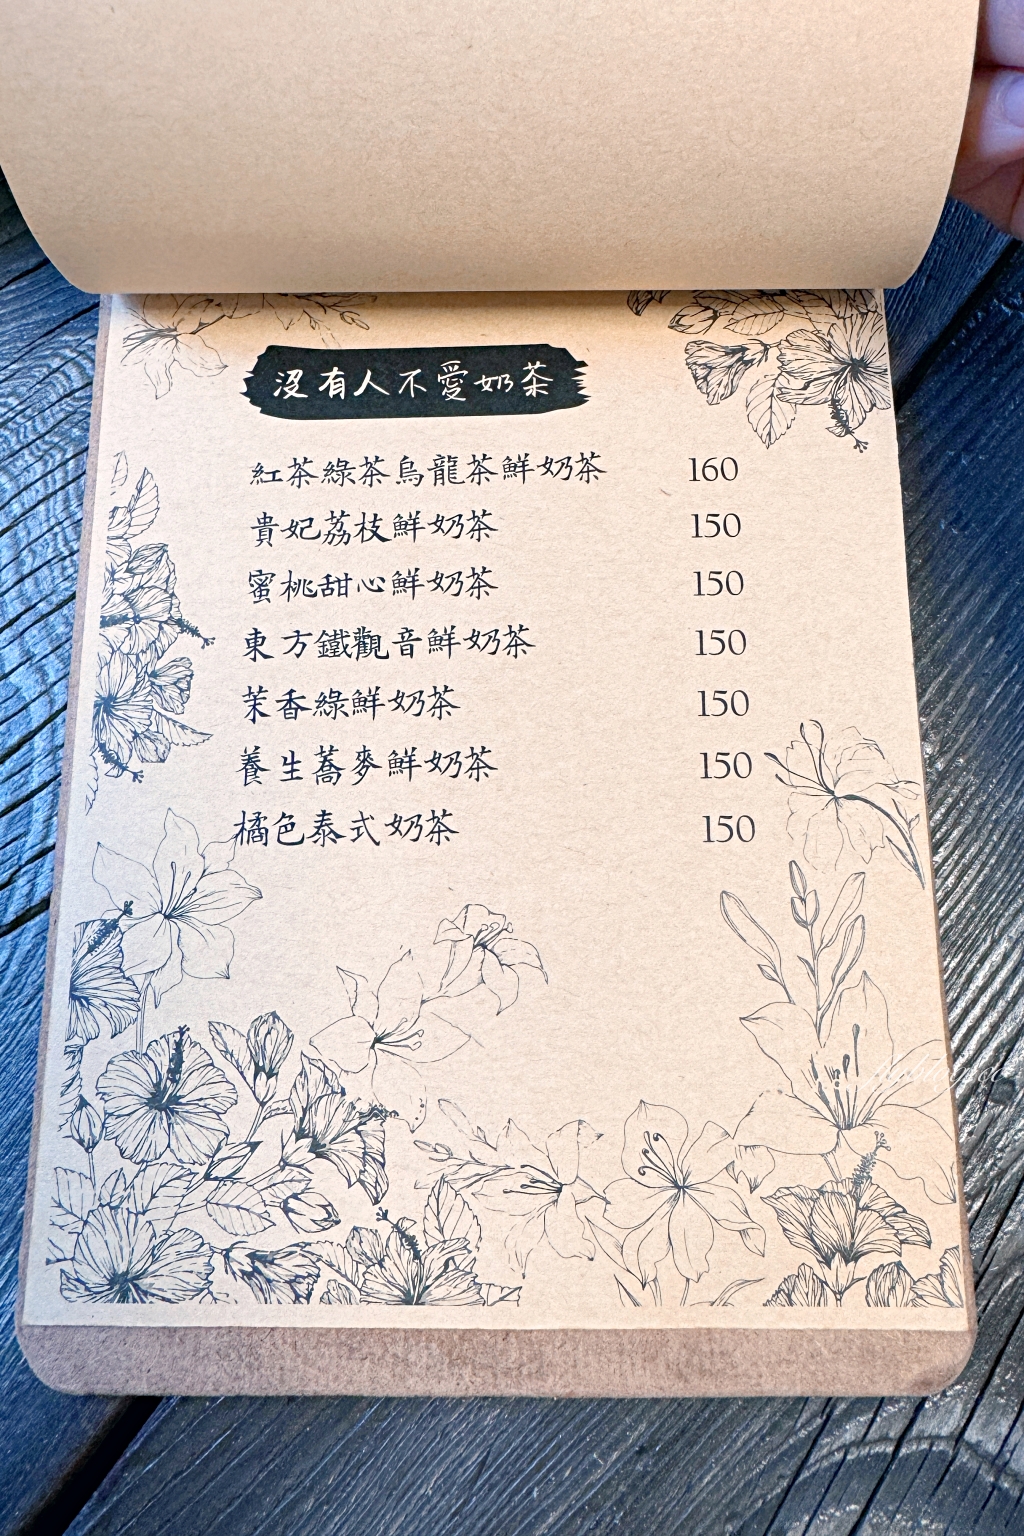 沒有人不愛奶茶
紅茶綠茶烏龍茶鮮奶茶 160
貴妃荔枝鮮奶茶 150
蜜桃甜心鮮奶茶 150
東方鐵觀音鮮奶茶 150
茉香綠鮮奶茶 150
養生蕎麥鮮奶茶 150
橘色泰式奶茶 150